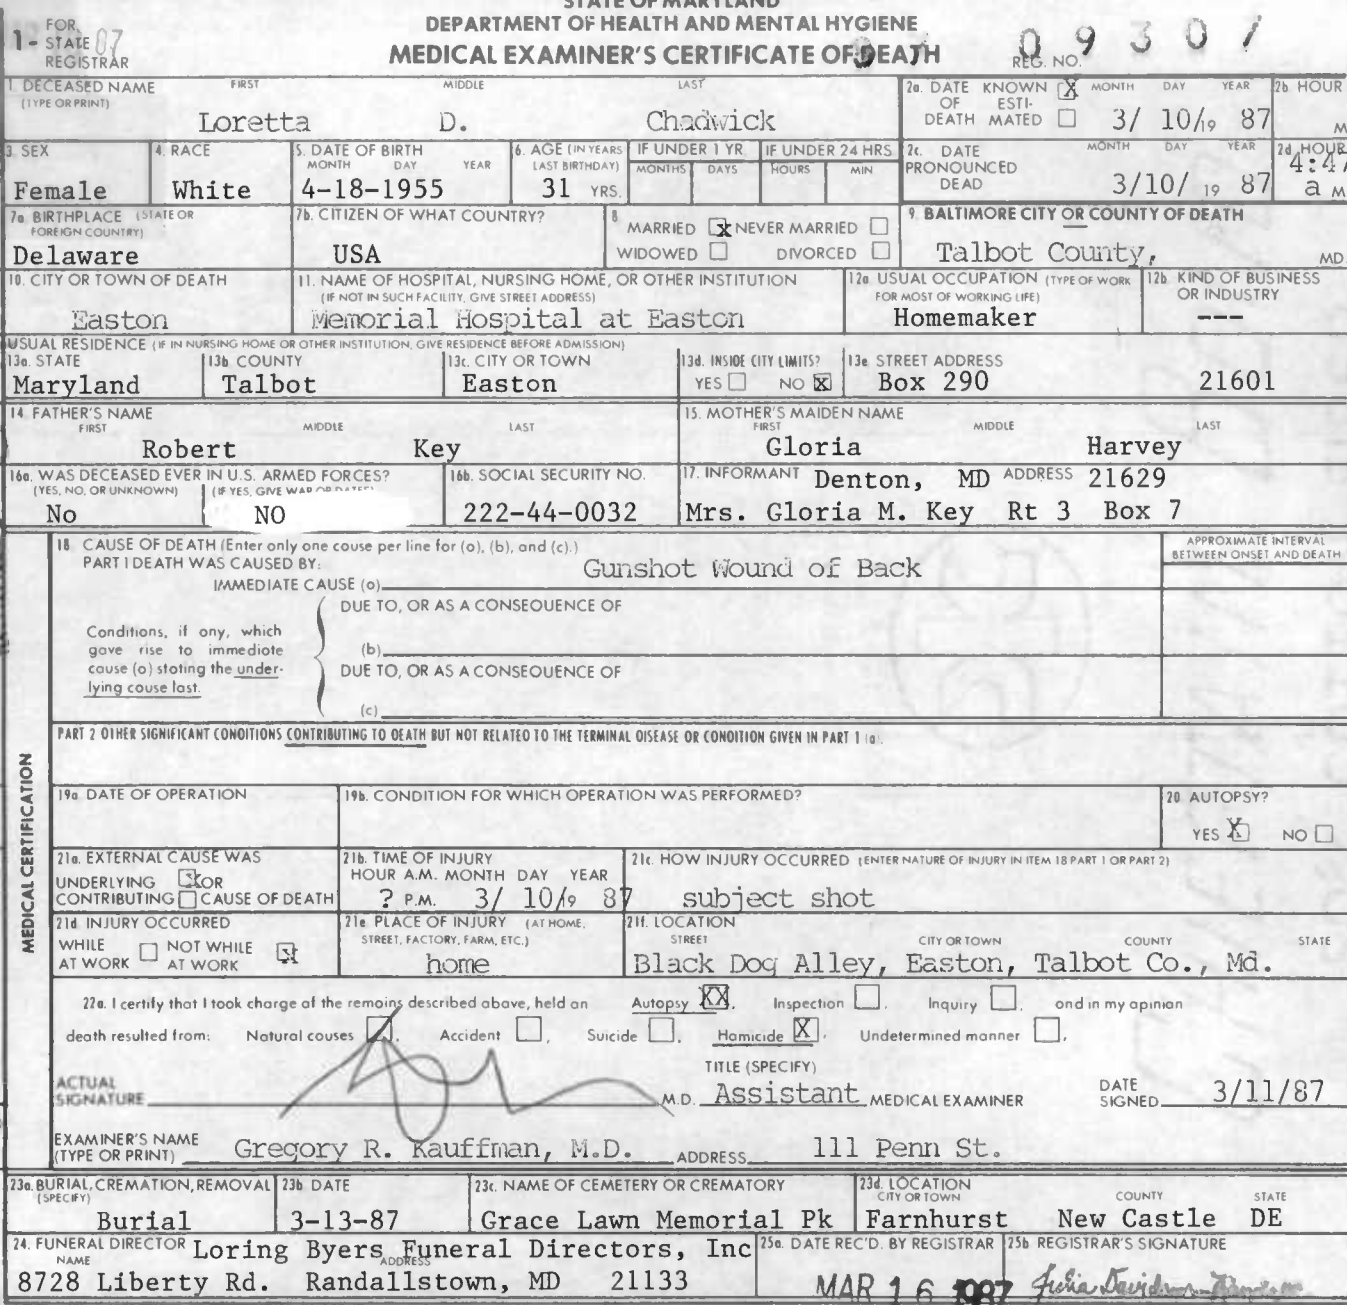 STATE OF MARYLAND
DEPARTMENT OF HEALTH AND MENTAL HYGIENE
MEDICAL EXAMINER'S CERTIFICATE OF DEATH
1- FOR STATE REGISTRAR 87
REG. NO. 09307
1. DECEASED NAME (TYPE OR PRINT) FIRST MIDDLE LAST
Loretta D. Chadwick
2a. DATE OF DEATH KNOWN X ESTIMATED MONTH DAY YEAR 2b. HOUR
3/ 10/19 87 M
3. SEX 4. RACE 5. DATE OF BIRTH MONTH DAY YEAR 6. AGE (IN YEARS LAST BIRTHDAY) IF UNDER 1 YR. MONTHS DAYS IF UNDER 24 HRS HOURS MIN
Female White 4-18-1955 31 YRS.
2c. DATE PRONOUNCED DEAD MONTH DAY YEAR 2d. HOUR
3/10/ 19 87 4:4 a M
7a. BIRTHPLACE (STATE OR FOREIGN COUNTRY) 7b. CITIZEN OF WHAT COUNTRY?
Delaware USA
8. MARRIED X NEVER MARRIED
WIDOWED DIVORCED
9. BALTIMORE CITY OR COUNTY OF DEATH
Talbot County, MD
10. CITY OR TOWN OF DEATH 11. NAME OF HOSPITAL, NURSING HOME, OR OTHER INSTITUTION (IF NOT IN SUCH FACILITY, GIVE STREET ADDRESS)
Easton Memorial Hospital at Easton
12a. USUAL OCCUPATION (TYPE OF WORK FOR MOST OF WORKING LIFE) 12b. KIND OF BUSINESS OR INDUSTRY
Homemaker ---
USUAL RESIDENCE (IF IN NURSING HOME OR OTHER INSTITUTION, GIVE RESIDENCE BEFORE ADMISSION)
13a. STATE 13b. COUNTY 13c. CITY OR TOWN 13d. INSIDE CITY LIMITS? 13e. STREET ADDRESS
Maryland Talbot Easton YES NO X Box 290 21601
14. FATHER'S NAME FIRST MIDDLE LAST 15. MOTHER'S MAIDEN NAME FIRST MIDDLE LAST
Robert Key Gloria Harvey
16a. WAS DECEASED EVER IN U.S. ARMED FORCES? (YES, NO, OR UNKNOWN) (IF YES, GIVE WAR OR DATES) 16b. SOCIAL SECURITY NO.
No NO 222-44-0032
17. INFORMANT Denton, MD ADDRESS 21629
Mrs. Gloria M. Key Rt 3 Box 7
MEDICAL CERTIFICATION
18. CAUSE OF DEATH (Enter only one cause per line for (a), (b), and (c).)
PART I DEATH WAS CAUSED BY:
IMMEDIATE CAUSE (a) Gunshot Wound of Back
APPROXIMATE INTERVAL BETWEEN ONSET AND DEATH
DUE TO, OR AS A CONSEQUENCE OF
Conditions, if any, which gave rise to immediate cause (a) stating the underlying cause last.
(b)
DUE TO, OR AS A CONSEQUENCE OF
(c)
PART 2 OTHER SIGNIFICANT CONDITIONS CONTRIBUTING TO DEATH BUT NOT RELATED TO THE TERMINAL DISEASE OR CONDITION GIVEN IN PART 1 (a).
19a. DATE OF OPERATION 19b. CONDITION FOR WHICH OPERATION WAS PERFORMED? 20. AUTOPSY?
YES X NO
21a. EXTERNAL CAUSE WAS UNDERLYING X OR CONTRIBUTING CAUSE OF DEATH
21b. TIME OF INJURY HOUR A.M. MONTH DAY YEAR
? P.M. 3/ 10/19 87
21c. HOW INJURY OCCURRED (ENTER NATURE OF INJURY IN ITEM 18 PART 1 OR PART 2)
subject shot
21d. INJURY OCCURRED WHILE AT WORK NOT WHILE AT WORK X
21e. PLACE OF INJURY (AT HOME, STREET, FACTORY, FARM, ETC.)
home
21f. LOCATION STREET CITY OR TOWN COUNTY STATE
Black Dog Alley, Easton, Talbot Co., Md.
22a. I certify that I took charge of the remains described above, held an Autopsy XX, Inspection , Inquiry , and in my opinion
death resulted from: Natural causes , Accident , Suicide , Homicide X, Undetermined manner .
ACTUAL SIGNATURE M.D. TITLE (SPECIFY) Assistant MEDICAL EXAMINER DATE SIGNED 3/11/87
EXAMINER'S NAME (TYPE OR PRINT) Gregory R. Kauffman, M.D. ADDRESS 111 Penn St.
23a. BURIAL, CREMATION, REMOVAL (SPECIFY) 23b. DATE 23c. NAME OF CEMETERY OR CREMATORY 23d. LOCATION CITY OR TOWN COUNTY STATE
Burial 3-13-87 Grace Lawn Memorial Pk Farnhurst New Castle DE
24. FUNERAL DIRECTOR NAME Loring Byers Funeral Directors, Inc
ADDRESS
8728 Liberty Rd. Randallstown, MD 21133
25a. DATE REC'D. BY REGISTRAR 25b. REGISTRAR'S SIGNATURE
MAR 16 1987 Julia Davidson